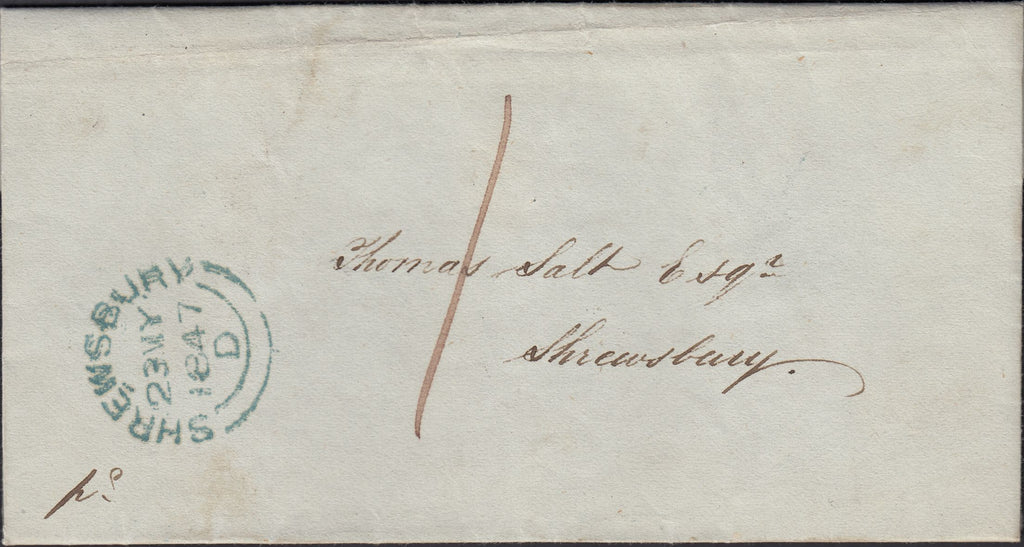 1
Thomas Salt Esqr
Shrewsbury.
SHREWSBURY
23 MY
1847
D
pd